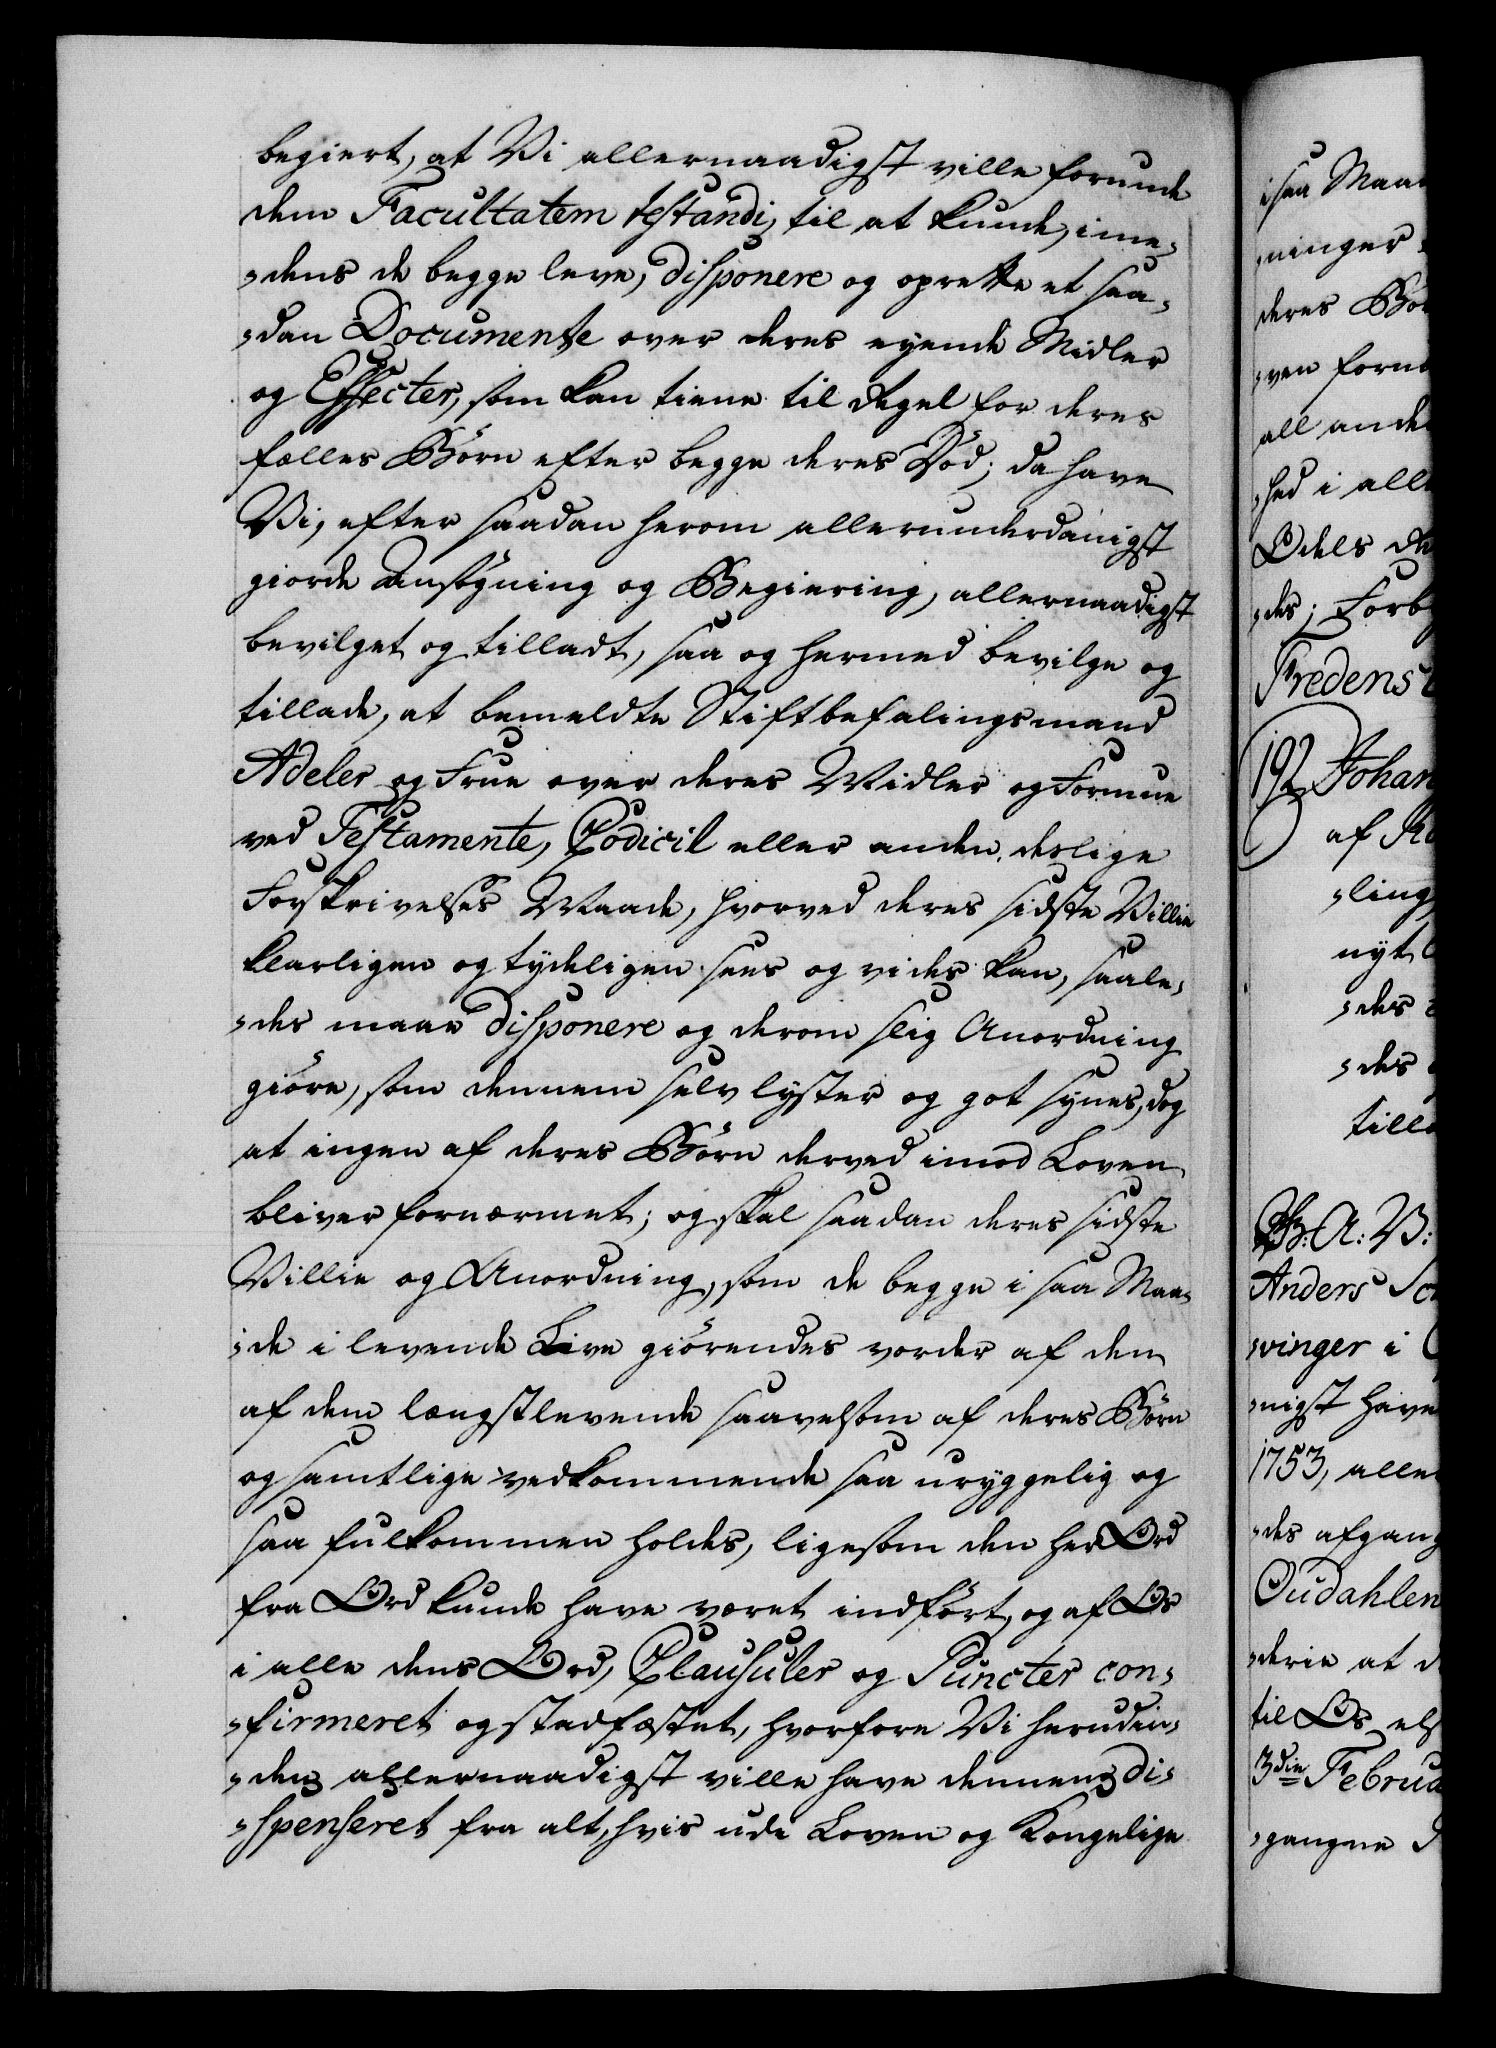 begiert, at Vi allernaadigst ville forunde
dem Facultatem testandi, til at kunde, ime-
-dens de begge leve, disponere og oprette et saa-
-dan Documente over deres eyende Midler
og Effecter, som kan tiene til Regel for deres
fælles Börn efter begge deres Död; da have
Vi, efter saadan herom allerunderdanigst
giorde Ansögning og Begiering, allernaadigst
bevilget og tilladt, saa og hermed bevilge og
tillade, at bemeldte Stiftbefalingsmand
Adeler og Frue over deres Midler og Formue
ved Testamente, Codicil eller anden deslige
Forskrivelses Maade, hvorved deres sidste Villie
klarligen og tydeligen sees og vides kan, saale-
-des maae disponere og derom slig Anordning
giöre, som dennem selv lyster og got synes, dog
at ingen af deres Börn derved imod Loven
bliver fornærmet; og skal saadan deres sidste
Villie og Anordning, som de begge i saa Maa-
-de i levende Live giörendes vorder af den
af dem længstlevende saavelsom af deres Börn
og samtlige vedkommende saa uryggelig og
saa fulkommen holdes, ligesom den her Ord
fra Ord kunde have været indfört, og af Os
i alle dens Ord, Clausuler og Puncter con-
-firmeret og stadfæstet, hvorfore Vi herudin-
-den allernaadigst ville have dennem di-
-spenseret fra alt, hvis udi Loven og Kongelige
i saa Maa
-ninger
deres Bör
-ven forn
all ande
-hed i all
Odels
-des; Forb
Fredens
192 Johan
af
-ling
nyt
-des
-des
till
A: V:
Anders
-vinger i
-nigst have
1753, alle
-des afgang
Oudahlen
-derie at d
til Os els
3die Februa
-gangne